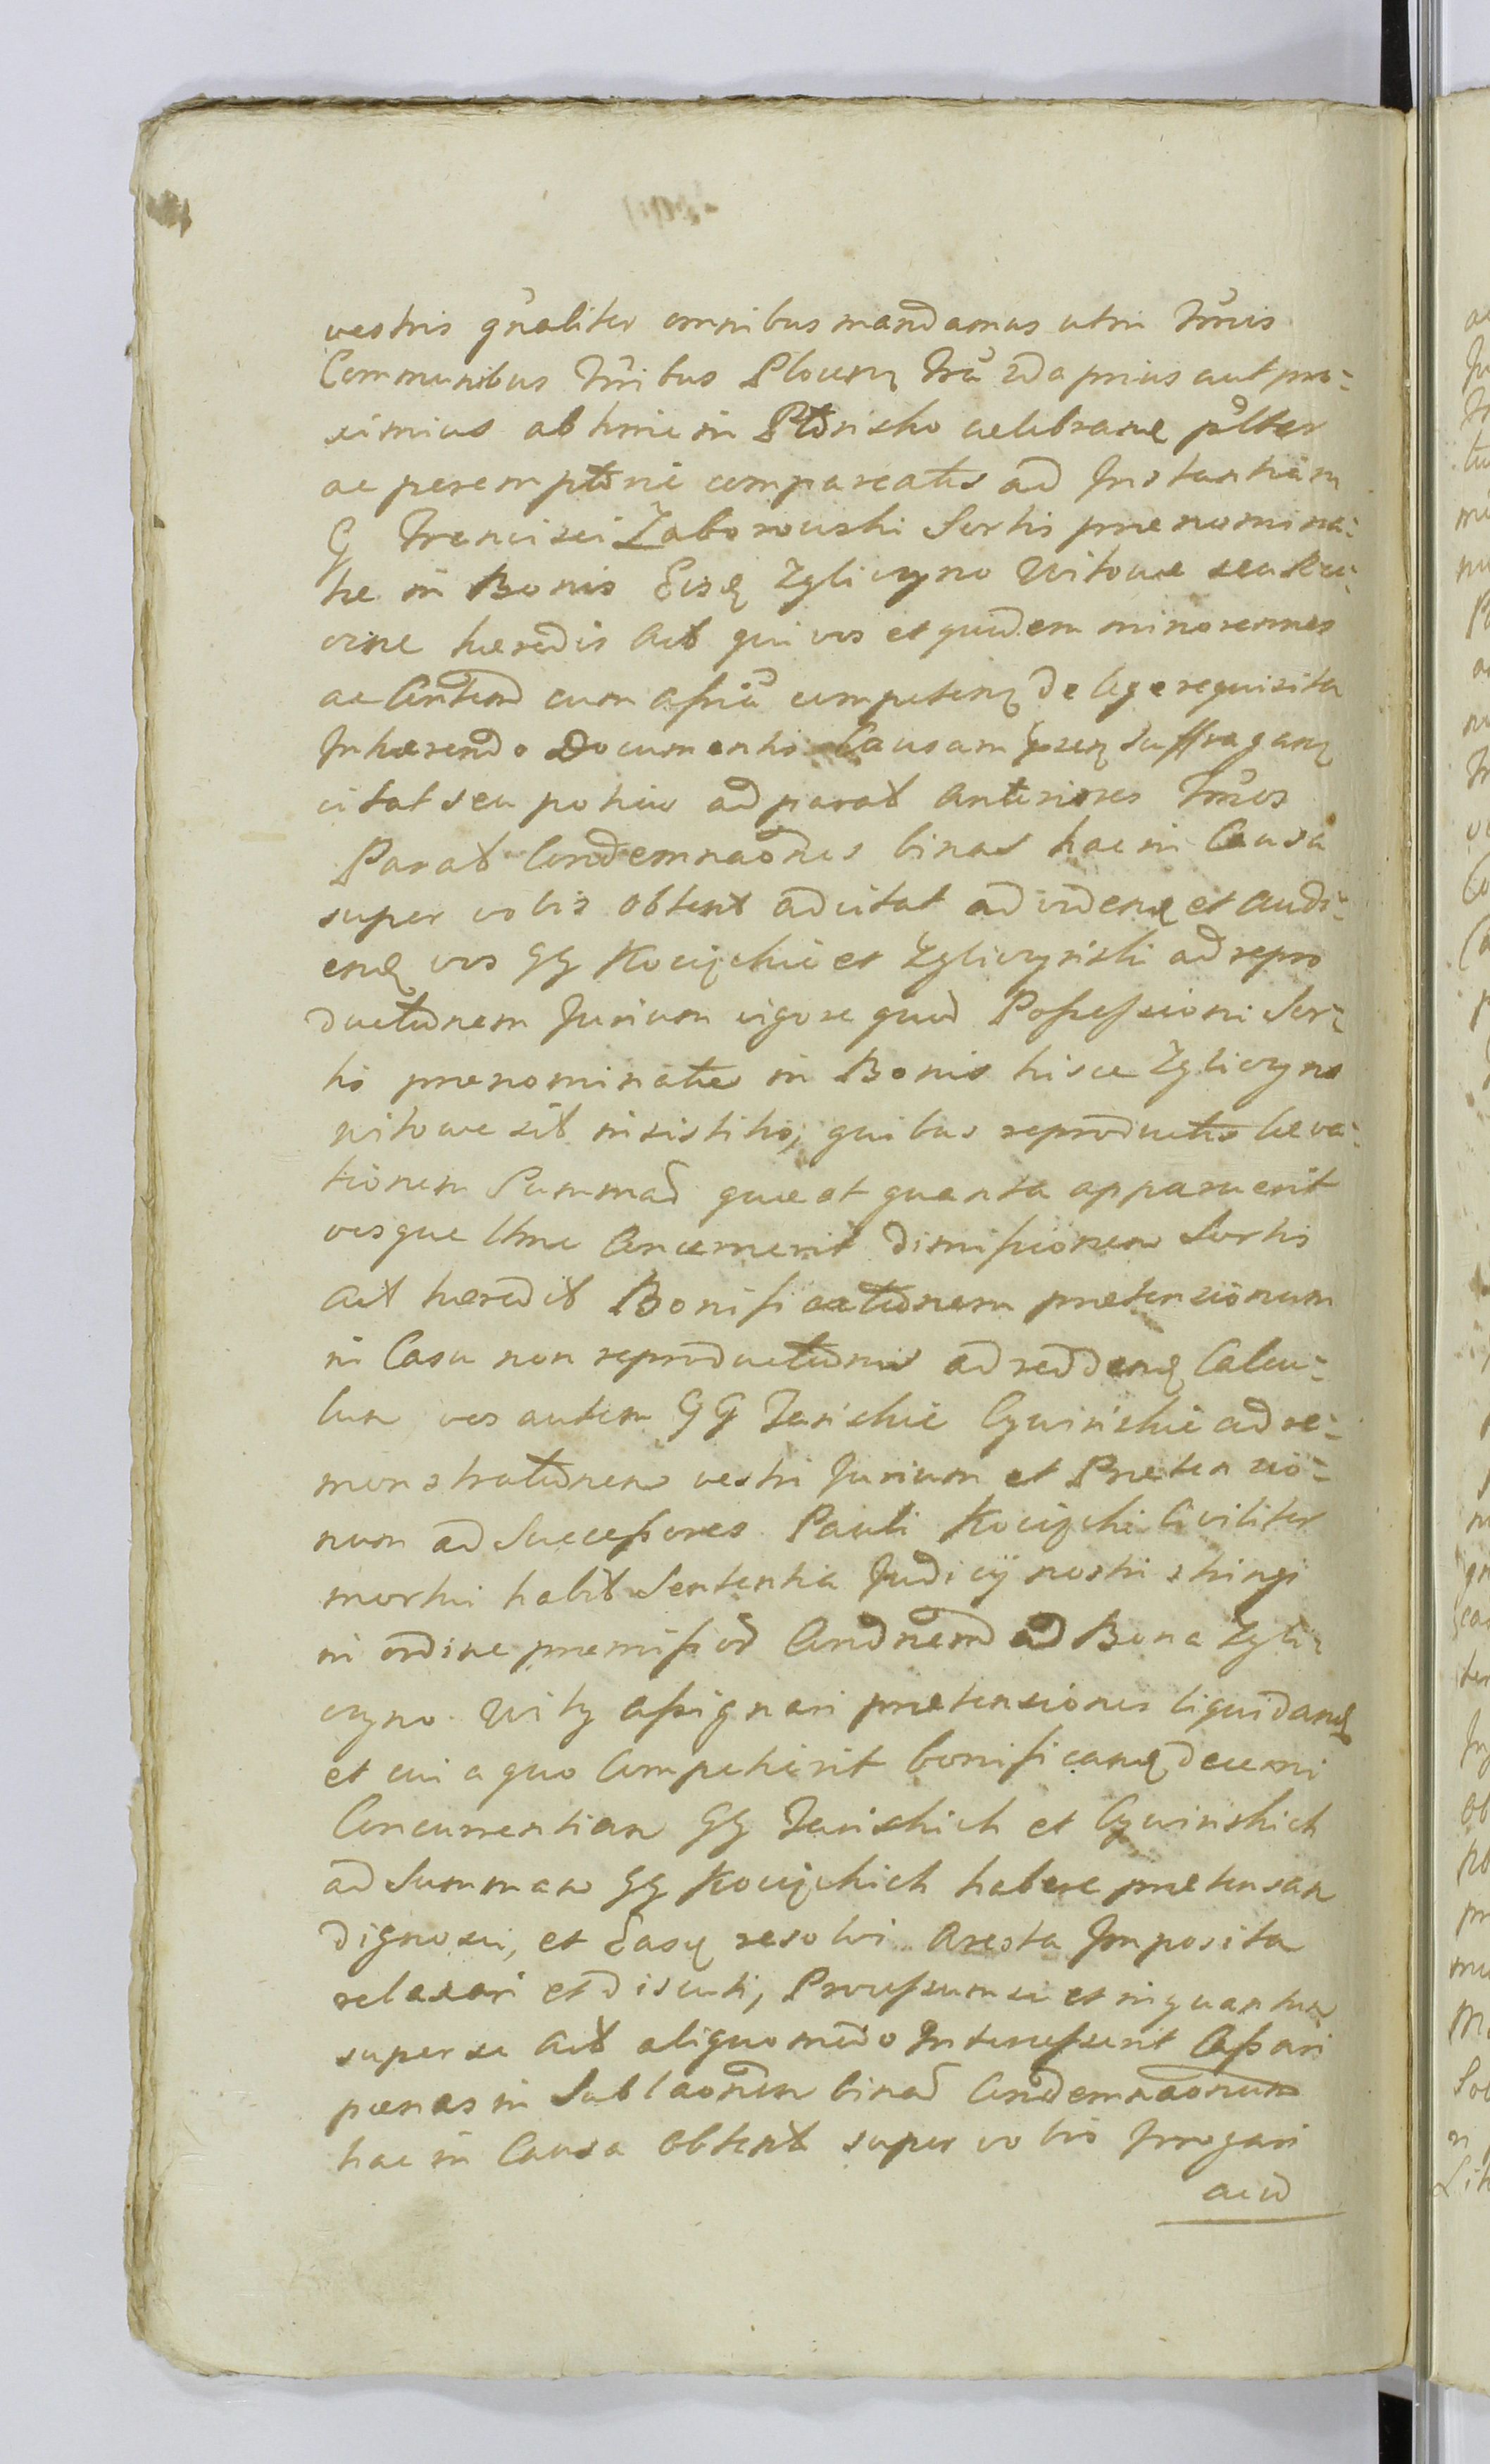 vestris gn̄aliter omnibus mandamus utin Tr̄mis
Communibus Tr̄ribus Plocen Trā
ximius ab hinc in Płońsko celebrane pltter
ac peremptōrie compareatis ad Instantiam
G Francisci Zaborowski Sortis prænomina-
tæ in Bonis Eisq Zgliczyno Witowe seu
hæredis Act qui vos et quidem minorennes
ac cum assiā competen de lege requisita
Inhærendo Documentis Causam pren Suffragan
citat seu potius ad parat anteriores Tr̄mos
Parat Condemnaōnes binas hac in Causa
super vobis obtent adcitat ad viden et audi-
end vos GG Kocięckie et Zgliczyński ad repro
ductionem Jurium vigore quod Possessioni Sor-
tis prænominatæ in Bonis hisce Zgliczyno
Witowe sit insistitis, quibus reproductis leva-
tionem Summad quæ et quanta apparuerit
vosque Concernerit dimissionem Sortis
Act hæredit Bonificationem prætensionum
in Casu non reproductionis ad redden Calcu-
lum vos autem GG Cywińskie ad re-
monstrationem vestri Jurium et Prætensio-
num ad Successores Pauli Kocięcki Civiliter
mortui habit Sententia Judicij nostri stringi
in ordine præmissod ad Bona Zgli-
czyno Witz assignari prætensiones liquidand
et cui a quo Competierit bonificand decerni
Concurrentiam GG et Cywińskich
ad Summam GG Kocięckich habere prætensam
dignosci, et Easq resolvi Aresta Imposita
relaxari et discuti, Processum si et inquantum
super se Act aliquo modo Interesserit Cassari
pœnas in Sublaōnem binad Condemnaōnum
hac in Causa obtent super vobis Irrogari
aliud